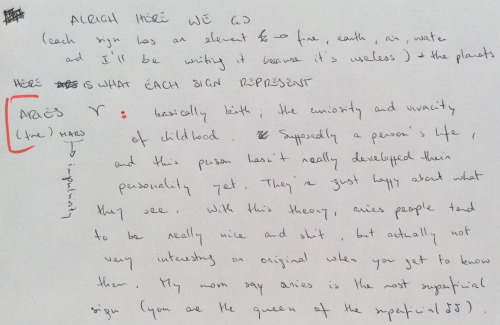 ALRIGH HERE WE GO
(each sign has an element → fire, earth, air, water
and I'll be writing it because it's useless) + the planets
HERE IS WHAT EACH SIGN REPRESENT
ARIES ♈ : basically birth, the curiosity and vivacity
(fire) MARS of childhood. Supposedly a person's life,
↓ impulsivity and this person hasn't really developed their
personality yet. They're just happy about what
they see. With this theory, aries people tend
to be really nice and shit, but actually not
very interesting or original when you get to know
them. My mom say aries is the most superficial
sign (you are the queen of the superficial ♫♫).